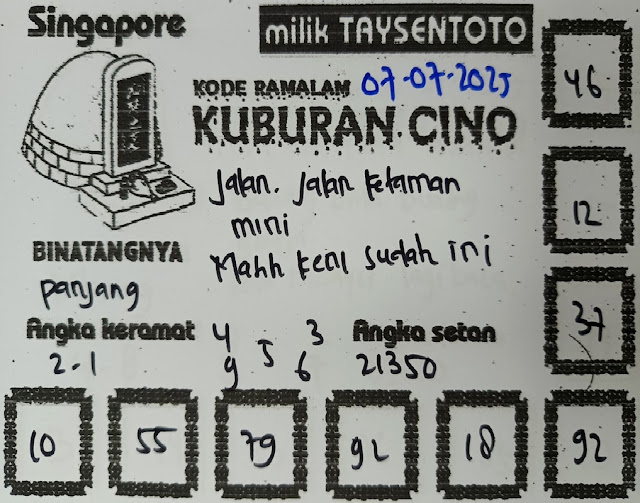 Singapore
milik TAYSENTOTO
KODE RAMALAM 07-07-2025
KUBURAN CINO
46
Jalan. Jalan ketaman
mini
12
Mahh kenl sudah ini
BINATANGNYA
panjang
37
Angka keramat 4 3 Angka setan
5
2-1 9 6 21350
10 55 79 92 18 92